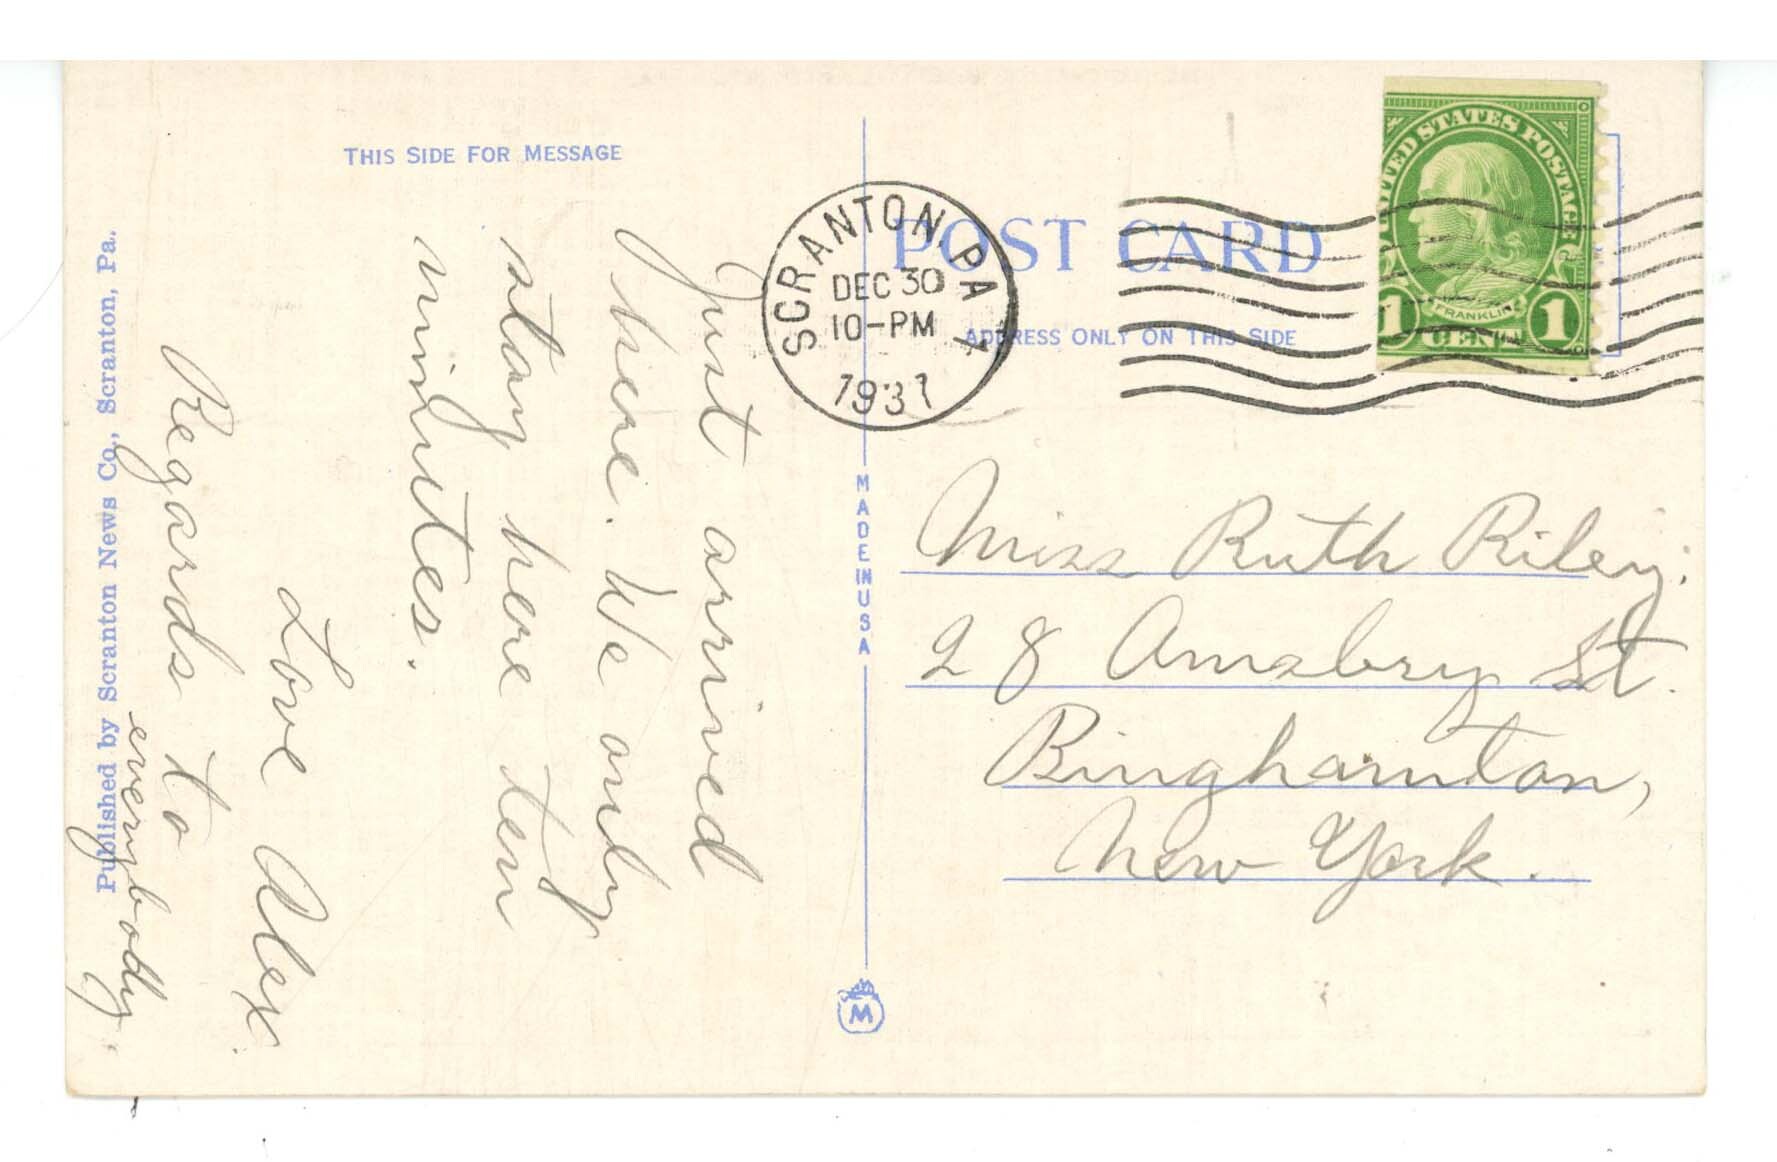 THIS SIDE FOR MESSAGE
Just arrived
here. We only
stay here ten
minutes.
Love Alex.
Regards to
everybody.
Published by Scranton News Co., Scranton, Pa.
MADE IN USA
M
POST CARD
ADDRESS ONLY ON THIS SIDE
SCRANTON, PA
DEC 30
10-PM
1931
UNITED STATES POSTAGE
FRANKLIN
1 CENT 1
Miss Ruth Riley.
28 Amsbry St.
Binghamton,
New York.